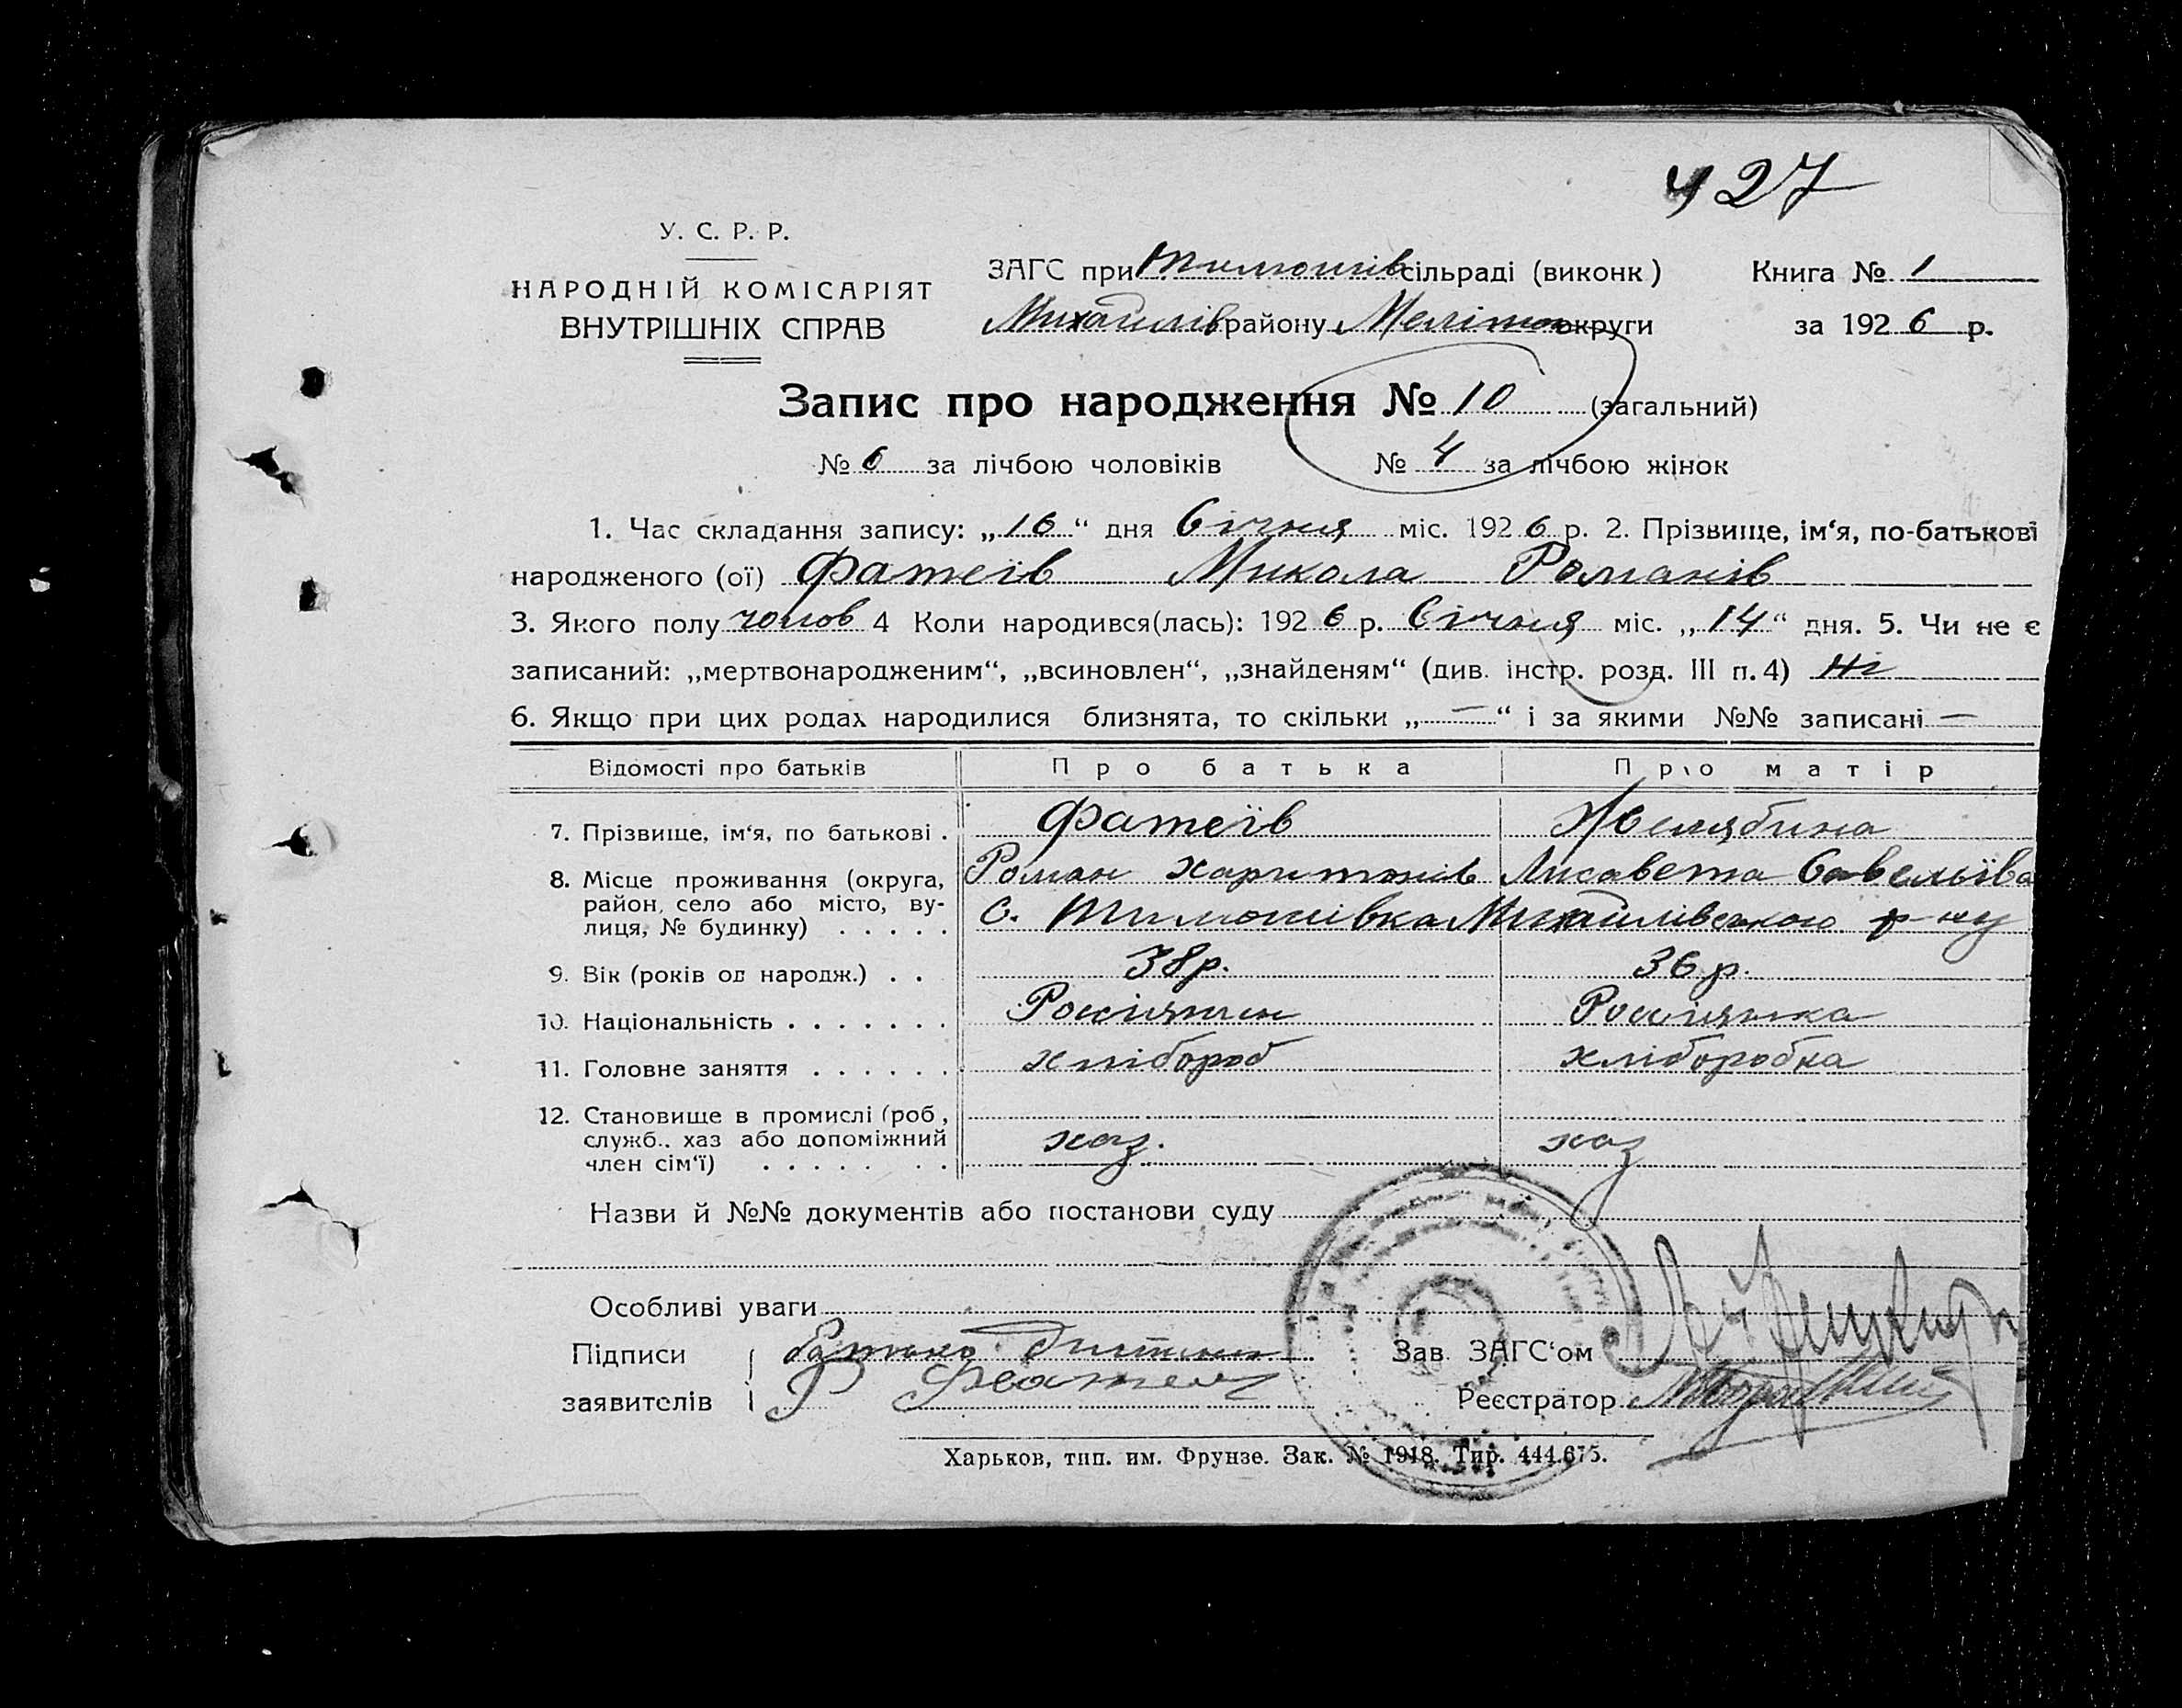 427
У. С. Р. Р.
НАРОДНІЙ КОМІСАРІЯТ
ВНУТРІШНІХ СПРАВ
ЗАГС при Тимошів сільраді (виконк)
Михайлів району Меліто округи
Книга № 1
за 1926 р.
Запис про народження № 10 (загальний)
№ 6 за лічбою чоловіків № 4 за лічбою жінок
1. Час складання запису: „16“ дня Січня міс. 1926 р. 2. Прізвище, ім‘я, по-батькові
народженого (ої) Фатеїв Микола Романів
3. Якого полу чолов 4 Коли народився(лась): 1926 р. Січня міс. „14“ дня. 5. Чи не є
записаний: „мертвонародженим“, „всиновлен“, „знайденям“ (див. інстр. розд. III п. 4) Ні
6. Якщо при цих родах народилися близнята, то скільки „—“ і за якими №№ записані —
Відомості про батьків Про батька Про матір
7. Прізвище, ім‘я, по батькові . Фатеїв Желябина
Роман Харитонів Лисавета Савельїва
8. Місце проживання (округа,
район, село або місто, ву-
лиця, № будинку) . . . . . с. Тимошівка Михайлівського р-ну
9. Вік (років од народж.) . . 38 р. 36 р.
10. Національність . . . . . . . Россіянин Россіянка
11. Головне заняття . . . . . . хлібороб хлібороб­ка
12. Становище в промислі (роб ,
служб., хаз або допоміжний
член сім‘ї) . . . . . . . хаз. хаз
Назви й №№ документів або постанови суду
Особливі уваги
Підписи батько дитини Зав. ЗАГС‘ом
заявителів Р Фатеев Реєстратор
Харьков, тип. им. Фрунзе. Зак. № 1918. Тир. 444.675.